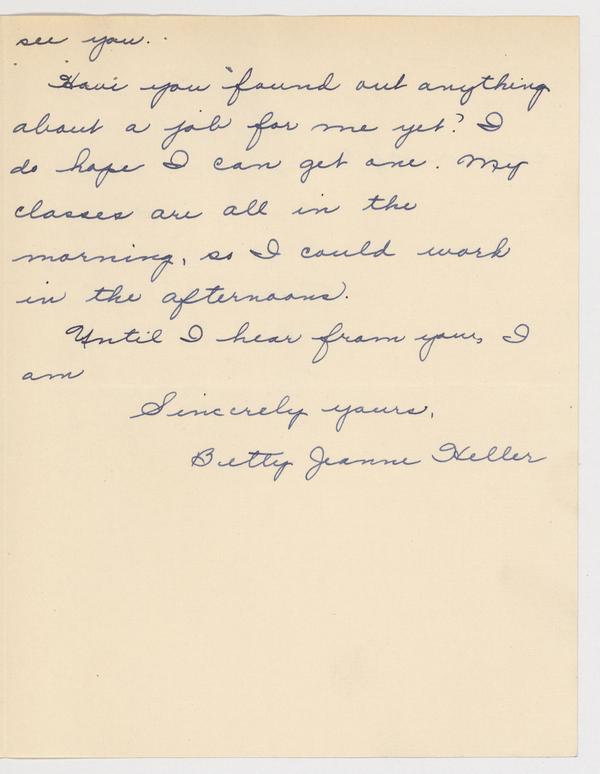 see you.
Have you found out anything
about a job for me yet? I
do hope I can get one. My
classes are all in the
morning, so I could work
in the afternoons.
Until I hear from you, I
am
Sincerely yours,
Betty Jeanne Heller